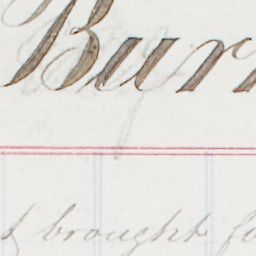 Bur
brought fo